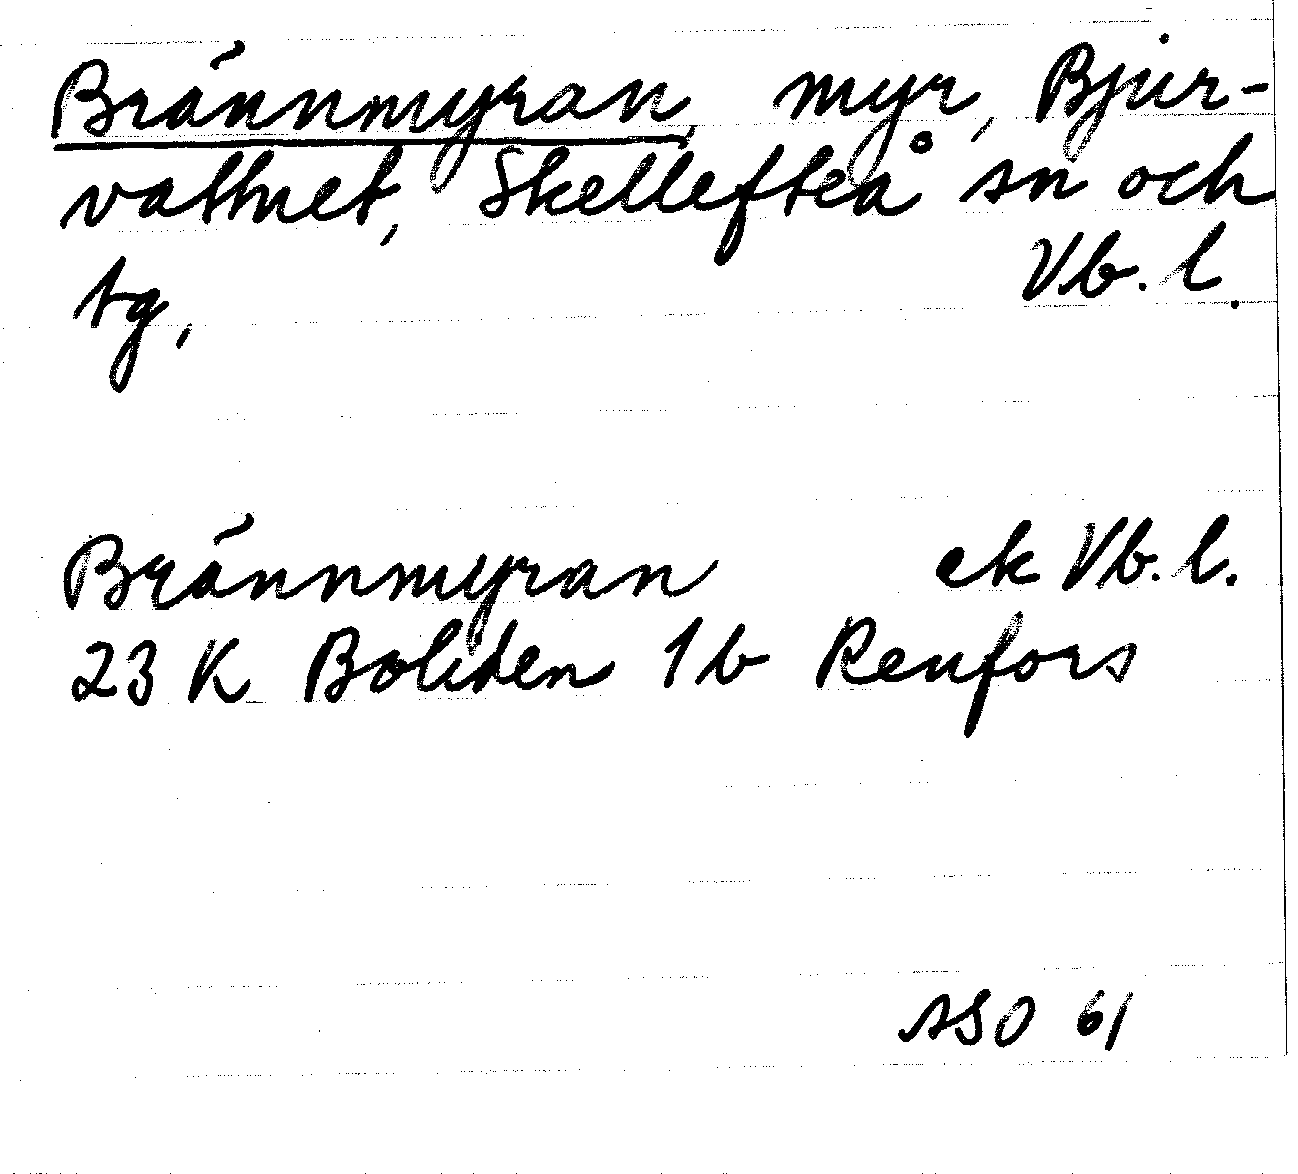 Brännmyran, myr, Bjur-
vattnet, Skellefteå sn och
tg, Vb. l.
Brännmyran ek Vb. l.
23 K Boliden 1 b Renfors
ASO 61